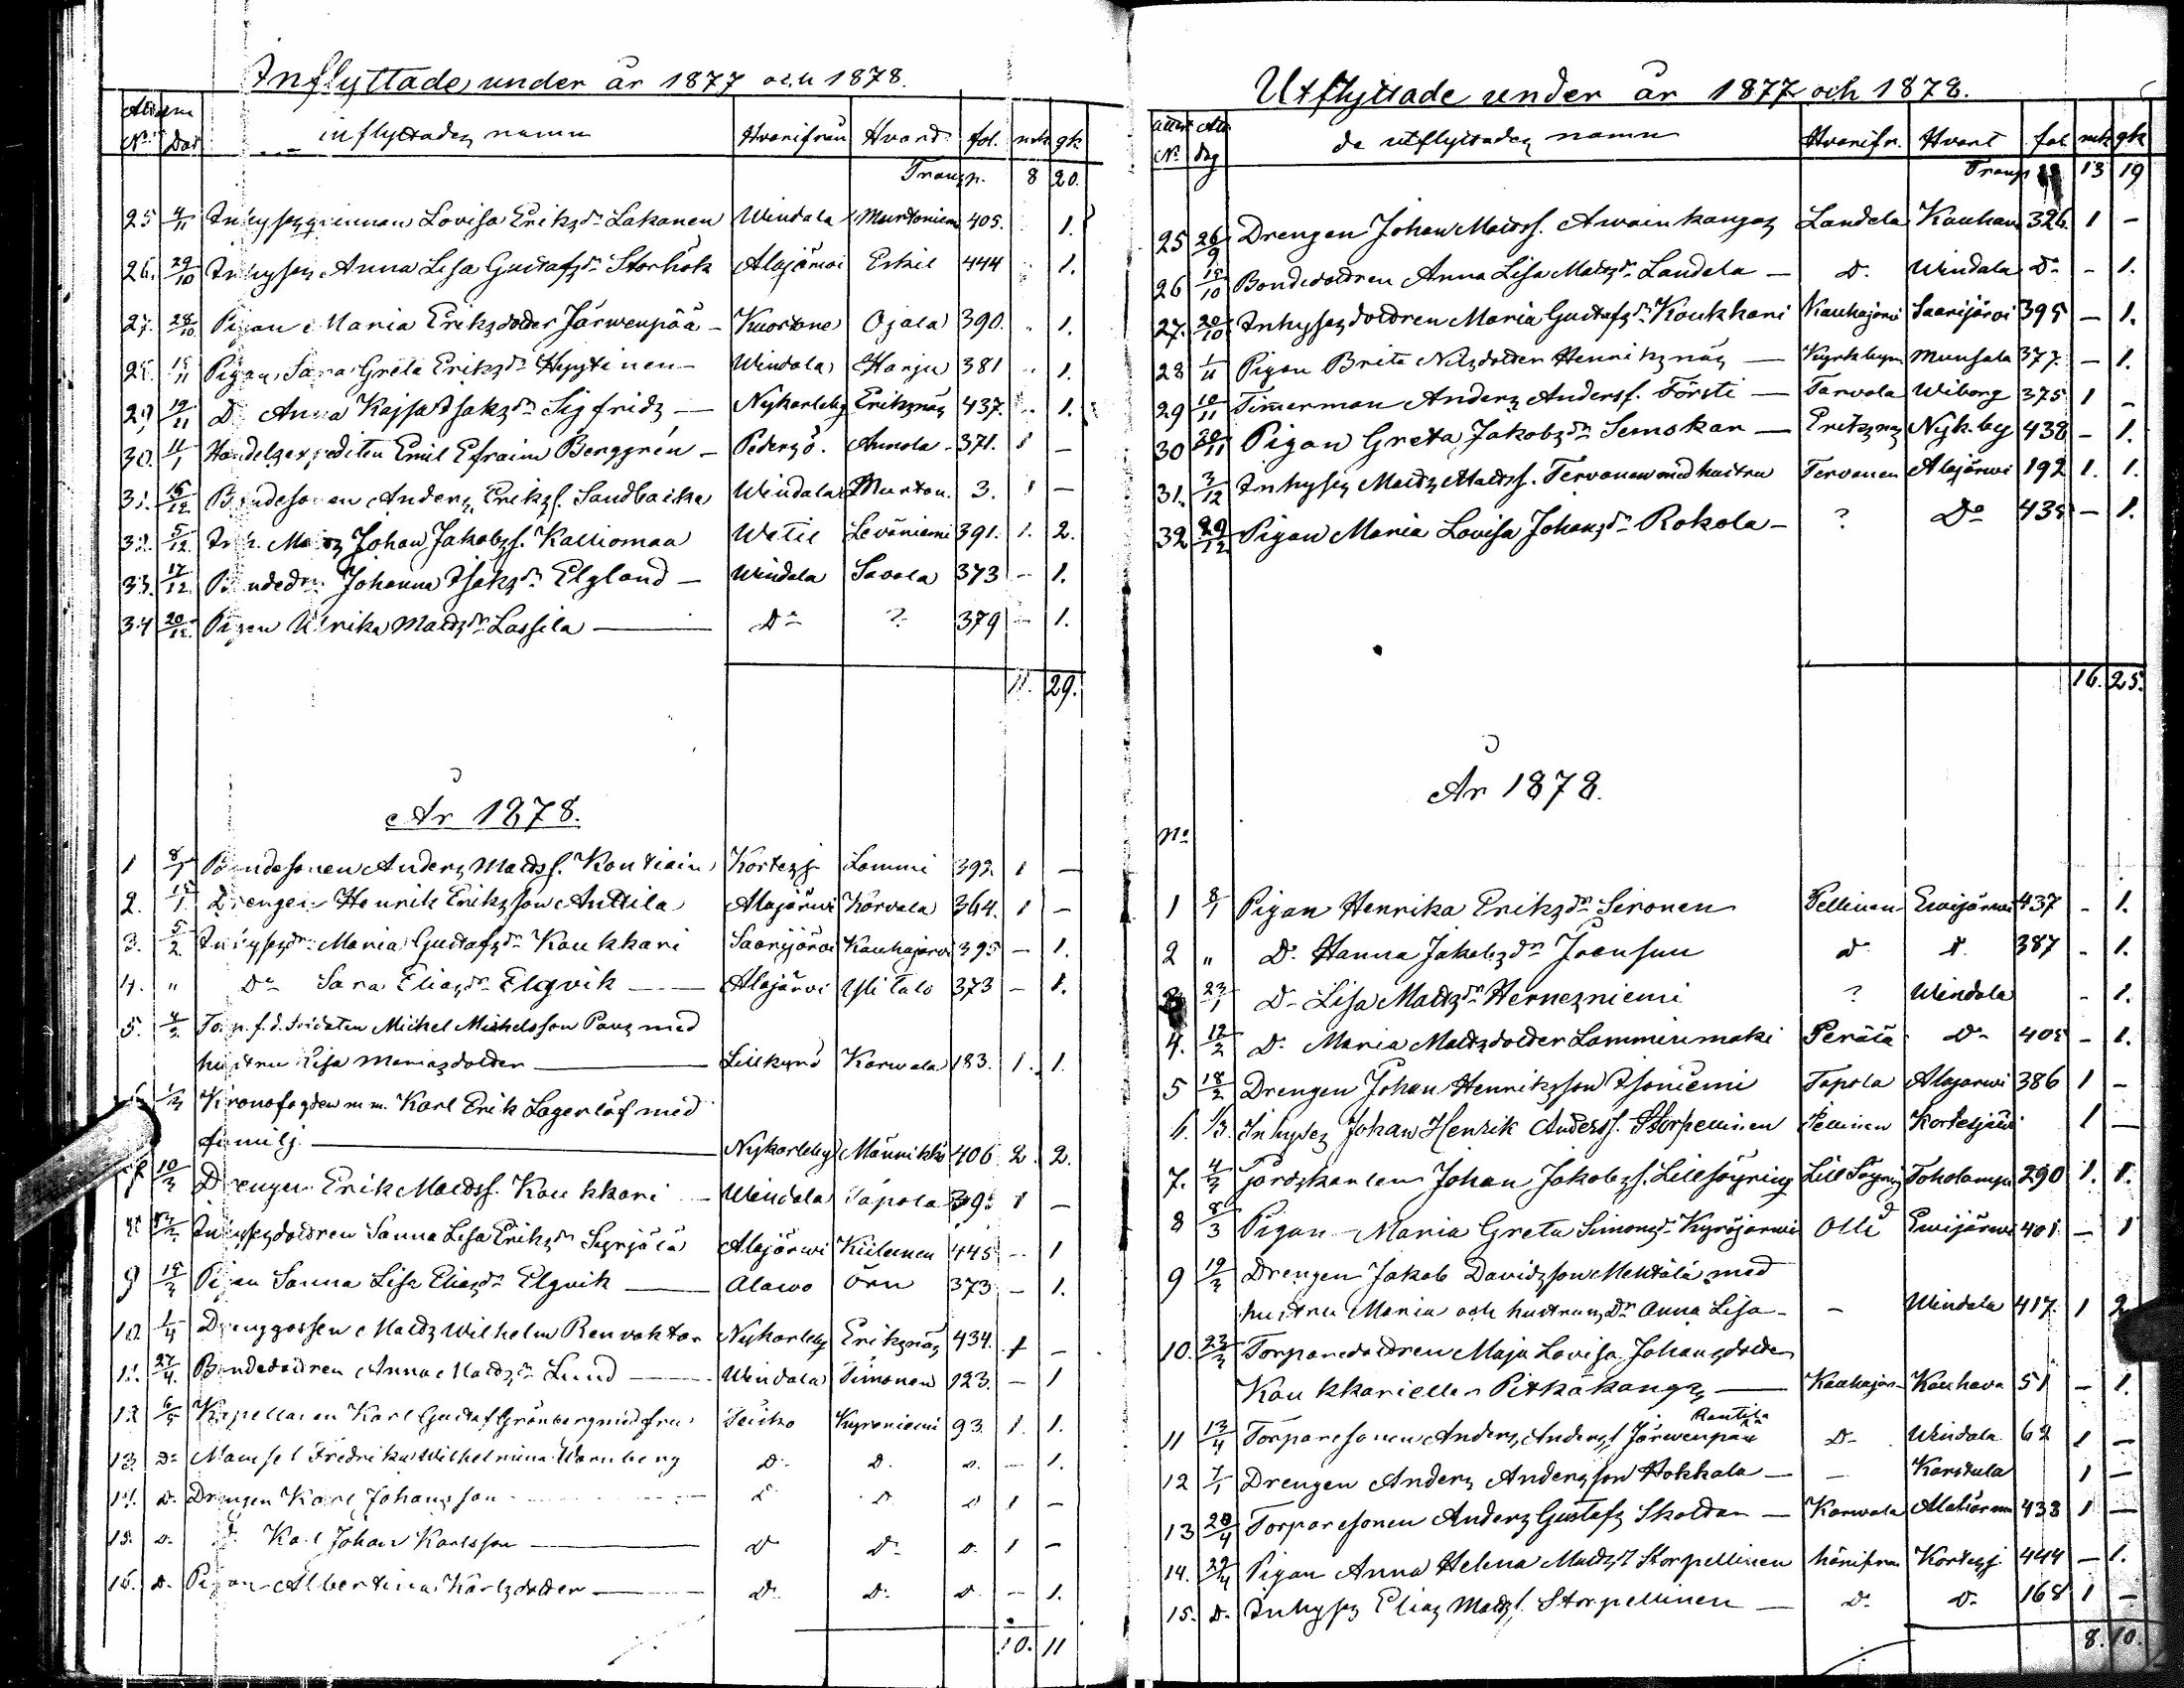 Inflyttade under år 1877 och 1878.
No Dat inflyttades namn Hvarifrån Hvart fol. mk qk
Transp. 8 20.
25 4/11 Inhyses qvinnan Lovisa Eriksdr Lakanen Windala Murtoniemi 405. 1.
26. 29/10 Inhyses Anna Lisa Gustafsdr Storhök Alajärvi Eskil 444 1.
27. 28/10 Pigan Maria Eriksdotter Järwenpää - Kuortane Ojala 390. 1.
28. 15/11 Pigan Sara Greta Eriksdr Hyytinen - Windala Harju 381 1.
29 19/11 Do Anna Kajsa Isaksdr Sigfrids — Nykarleby Eriksnäs 437. 1.
30. 11/1 Handelsexpediten Emil Efraim Berggrén - Pedersö. Annola 371. 1 —
31. 16/12 Bondesonen Anders Eriksf. Sandbacka Windala Murton. 3. 1 —
32. 5/12 Inh. Matts Johan Jakobsf. Kalliomaa Wetil Leväniemi 391. 1. 2.
33. 17/12. Bondedr. Johanna Isaksdr Elgland — Windala Savola 373 - 1.
34 20/12. Pigan Ulrika Mattsdr Lassila — Do ? 379 - 1.
11. 29.
År 1878.
1 8/1 Bondesonen Anders Mattsf. Kontiain Kortesj Lammi 392. 1 —
2. 15/1 Drengen Henrik Eriksson Anttila Alajärwi Körvala 364. 1 —
3. 5/2 Inhysesdr. Maria Gustafsdr Koukkari Saarijärvi Kauhajärvi 395 — 1.
4. " Do Sara Eliasdr Elgvik — Alajärvi Yli Talo 373 — 1.
5. 4/2 Torp. f.d. Soldaten Mickel Mickelsson Pavs med
hustru Lisa Mariasdotter — Lillkyrö Karwala 183. 1. 1.
1/3 Kronofogden m.m. Karl Erik Lagerlöf med
familj. — Nykarleby Männikkö 406 2. 2.
10/3 Drengen Erik Mattsf. Koukkari — Windala Tapola 395 1 —
Inhysesdottren Sanna Lisa Eriksdr Syrjälä Alajärwi Kiilunen 445 — 1
9 19/3 Pigan Sanna Lisa Eliasdr Elgvik — Alavo Örn 373 — 1.
10. 1/4 Drenggossen Matts Wilhelm Renvaktar Nykarleby Eriksnäs 434. 1 —
11. 27/4. Bondedottren Anna Mattsdr Lund — Windala Timonen 123. — 1
12 6/5 Kapellanen Karl Gustaf Grönberg med fru Teisko Kyroniemi 93. 1. 1.
13. Do Mamsel Fredrika Wilhelmina Warnberg Do Do Do — 1.
14. Do Drengen Karl Johansson Do Do Do 1 —
15. Do Do Karl Johan Karlsson — Do Do Do 1 —
16. Do Pigan Albertina Karlsdotter — Do Do Do — 1.
10. 11
Utflyttade under år 1877 och 1878.
Attest No Att dag de utflyttades namn Hvarifr. Hvart fol. mk qk
Transp 13 19
25 26/9 Drengen Johan Mattsf. Arvainkangas Landela Kauhava 326. 1 —
26 15/10 Bondedottren Anna Lisa Mattsdr Landela — Do. Windala Do - 1.
27. 20/10 Inhysesdottren Maria Gustafsdr Koukkari Kauhajärvi Saarijärvi 395 — 1.
28 1/11 Pigan Brita Nilsdotter Henriksnäs — Kyrkbyn Munsala 377. — 1.
29 10/11 Timerman Anders Andersf. Försti — Tarvola Wiborg 375 1 —
30 30/11 Pigan Greta Jakobsdr Semskar — Eriksnäs Nyk.by 438 — 1.
31. 3/12 Inhyses Matts Mattsf. Tervonen med hustru Tervonen Alajärwi 192 1. 1.
32 29/12 Pigan Maria Lovisa Johansdr Rokola — ? Do 438 — 1.
16. 25.
År 1878.
No
1 8/1 Pigan Henrika Eriksdr Sironen Pellinen Ewijärwi 437 - 1.
2 " Do Hanna Jakobsdr Joensuu Do Do 387 - 1.
3 23/1 Do Lisa Mattsdr Hernesniemi ? Windala - 1.
4. 12/2 Do Maria Mattsdotter Lamminmäki Perälä Do 405 - 1.
5 18/2 Drengen Johan Henriksson Isoniemi Tapola Alajärwi 386 1 —
6. 1/3. Inhyses Johan Henrik Andersf. Storpellinen Pellinen Kortesjärvi 1 —
7. 4/3 Gårdskarlen Johan Jakobsf. Lillsöyring Lill Söyring Toholampi 290 1. 1.
8 8/3 Pigan Maria Greta Simonsdr Kyröjärwi Olli Ewijärwi 401 — 1
9 19/3 Drengen Jakob Davidsson Mehtälä med
hustru Maria och hustruns dr Anna Lisa — - Windala 417. 1 2
10. 23/3 Torparedottren Maja Lovisa Johansdotter
Koukkari eller Pitkäkangas — Kauhajär. Kauhava 51 — 1.
Rantila
11 13/4 Torparesonen Anders Andersf. Järwenpää Do Windala 62 1 —
12 7/1 Drengen Anders Andersson Hokkala — — Karstula 1 —
13 20/4 Torparesonen Anders Gustafs Skoldar — Karwala Alahärmä 438 1 —
14. 29/4 Pigan Anna Helena Mattsdr Storpellinen härifrån Kortesj 444 — 1.
15. Do Inhyses Elias Mattsf. Storpellinen — Do Do 168 1 —
8. 10.